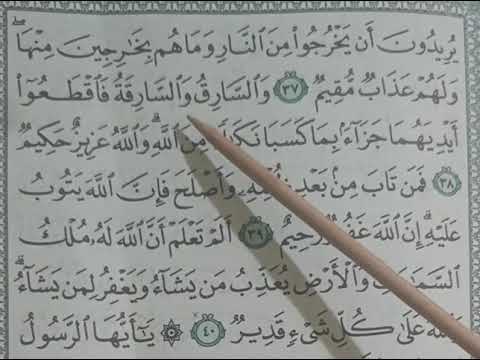 يُرِيدُونَ أَن يَخْرُجُوا۟ مِنَ ٱلنَّارِ وَمَا هُم بِخَٰرِجِينَ مِنْهَا
وَلَهُمْ عَذَابٌ مُّقِيمٌ ٣٧ وَٱلسَّارِقُ وَٱلسَّارِقَةُ فَٱقْطَعُوٓا۟
أَيْدِيَهُمَا جَزَآءَۢ بِمَا كَسَبَا نَكَٰلًا مِّنَ ٱللَّهِۗ وَٱللَّهُ عَزِيزٌ حَكِيمٌ
٣٨ فَمَن تَابَ مِنۢ بَعْدِ وَأَصْلَحَ فَإِنَّ ٱللَّهَ يَتُوبُ
عَلَيْهِۗ إِنَّ ٱللَّهَ غَفُورٌ رَّحِيمٌ ٣٩ أَلَمْ تَعْلَمْ أَنَّ ٱللَّهَ لَهُۥ مُلْكُ
ٱلسَّمَٰوَٰتِ وَٱلْأَرْضِ يُعَذِّبُ مَن يَشَآءُ وَيَغْفِرُ لِمَن يَشَآءُۗ
وَٱللَّهُ عَلَىٰ كُلِّ شَىْءٍ قَدِيرٌ ٤٠ ۞ يَٰٓأَيُّهَا ٱلرَّسُولُ